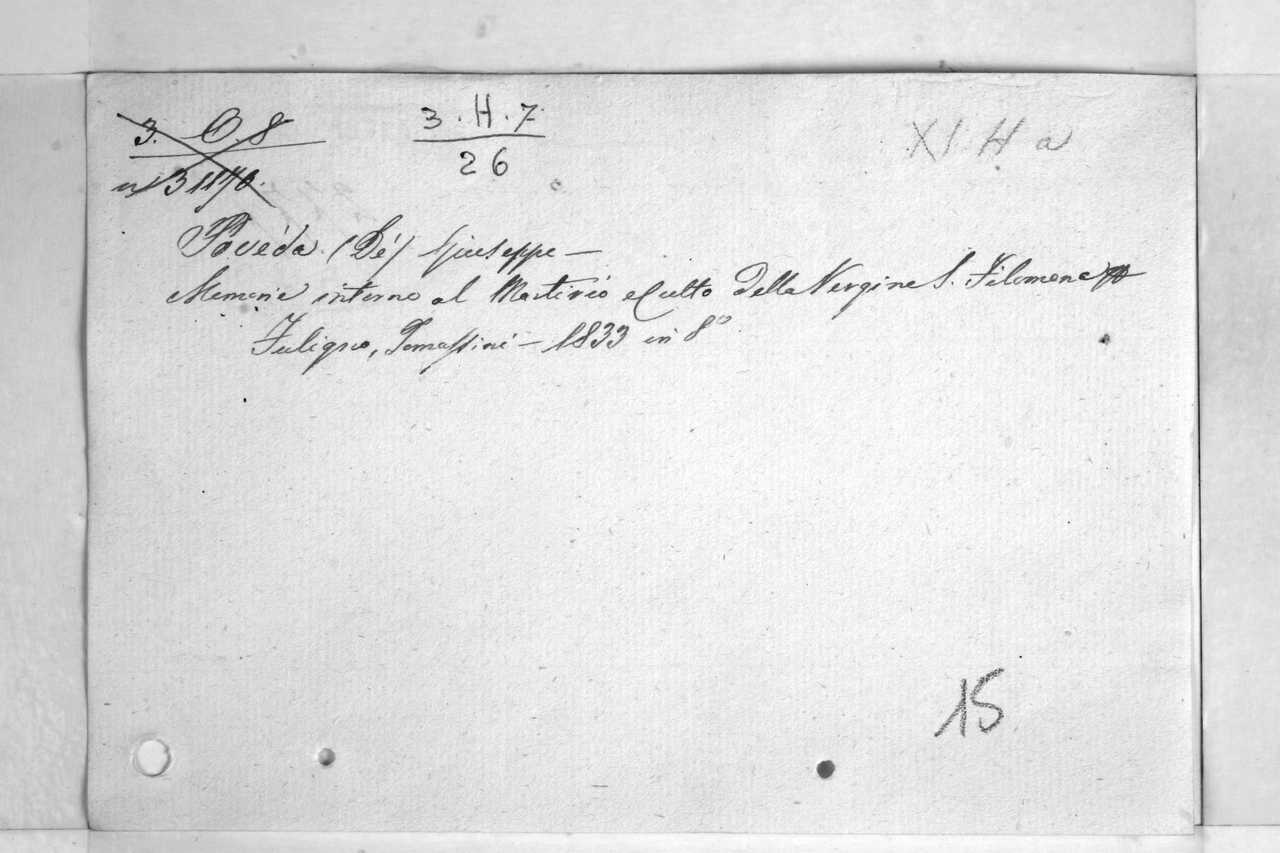 3. O. 8
3. H. 7
26
XI. H a
n° 31170.
Povéda (Dé) Giuseppe —
Memorie intorno al Martirio e Culto della Vergine S. Filomena
Fuligno, Tomassini — 1833 in 8°
15